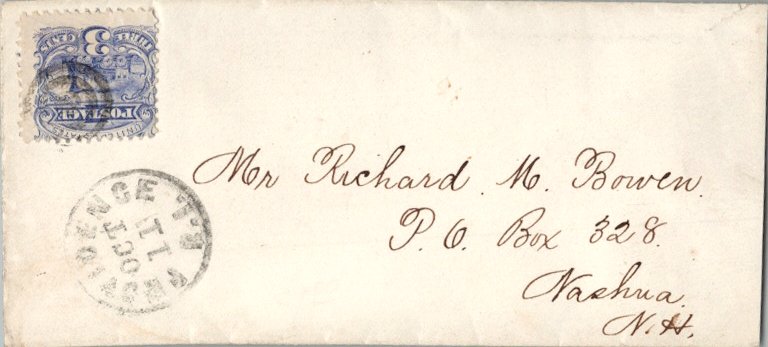 UNITED STATES
POSTAGE
3
THREE CENTS
PROVIDENCE R.I.
OCT
11
Mr Richard. M. Bowen.
P. O. Box 328.
Nashua.
N. H.